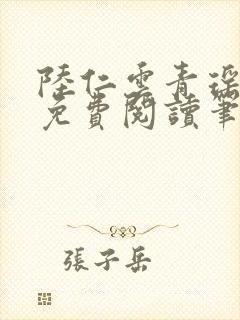 陸仁雲青瑤
免費閱讀筆
張子岳